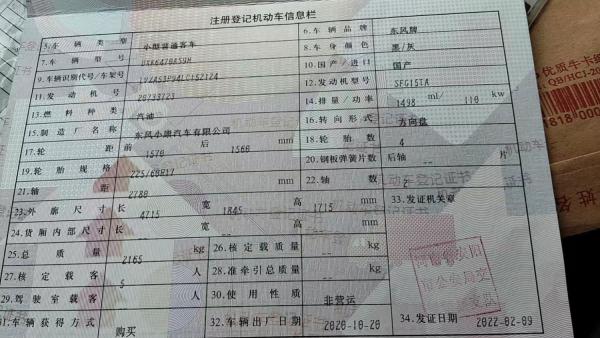 注册登记机动车信息栏
5.车辆类型 小型普通客车 6.车辆品牌 东风牌
7.车辆型号 DXK6470ASHM 8.车身颜色 黑/灰
9.车辆识别代号/车架号 10.国产/进口 国产
11.发动机号 20733723 12.发动机型号 SFG15TA
13.燃料种类 汽油 14.排量/功率 1498 ml/ 110 kw
15.制造厂名称 东风小康汽车有限公司 16.转向形式 方向盘
17.轮距 前 1570 后 1560 mm 18.轮胎数 4
19.轮胎规格 225/60R17 mm 20.钢板弹簧片数 后轴 -- 片
21.轴距 2780 mm 22.轴数 2
23.外廓尺寸 长 4715 宽 1845 高 1715 mm 33.发证机关章
24.货厢内部尺寸 长 -- 宽 -- 高 -- mm
25.总质量 2165 kg 26.核定载质量 -- kg
27.核定载客 5 人 28.准牵引总质量 -- kg
29.驾驶室载客 -- 人 30.使用性质 非营运
31.车辆获得方式 购买 32.车辆出厂日期 2020-10-20 34.发证日期 2022-02-09
市公安局交
支队
优质牛卡
QB/HCJ-20
姓名